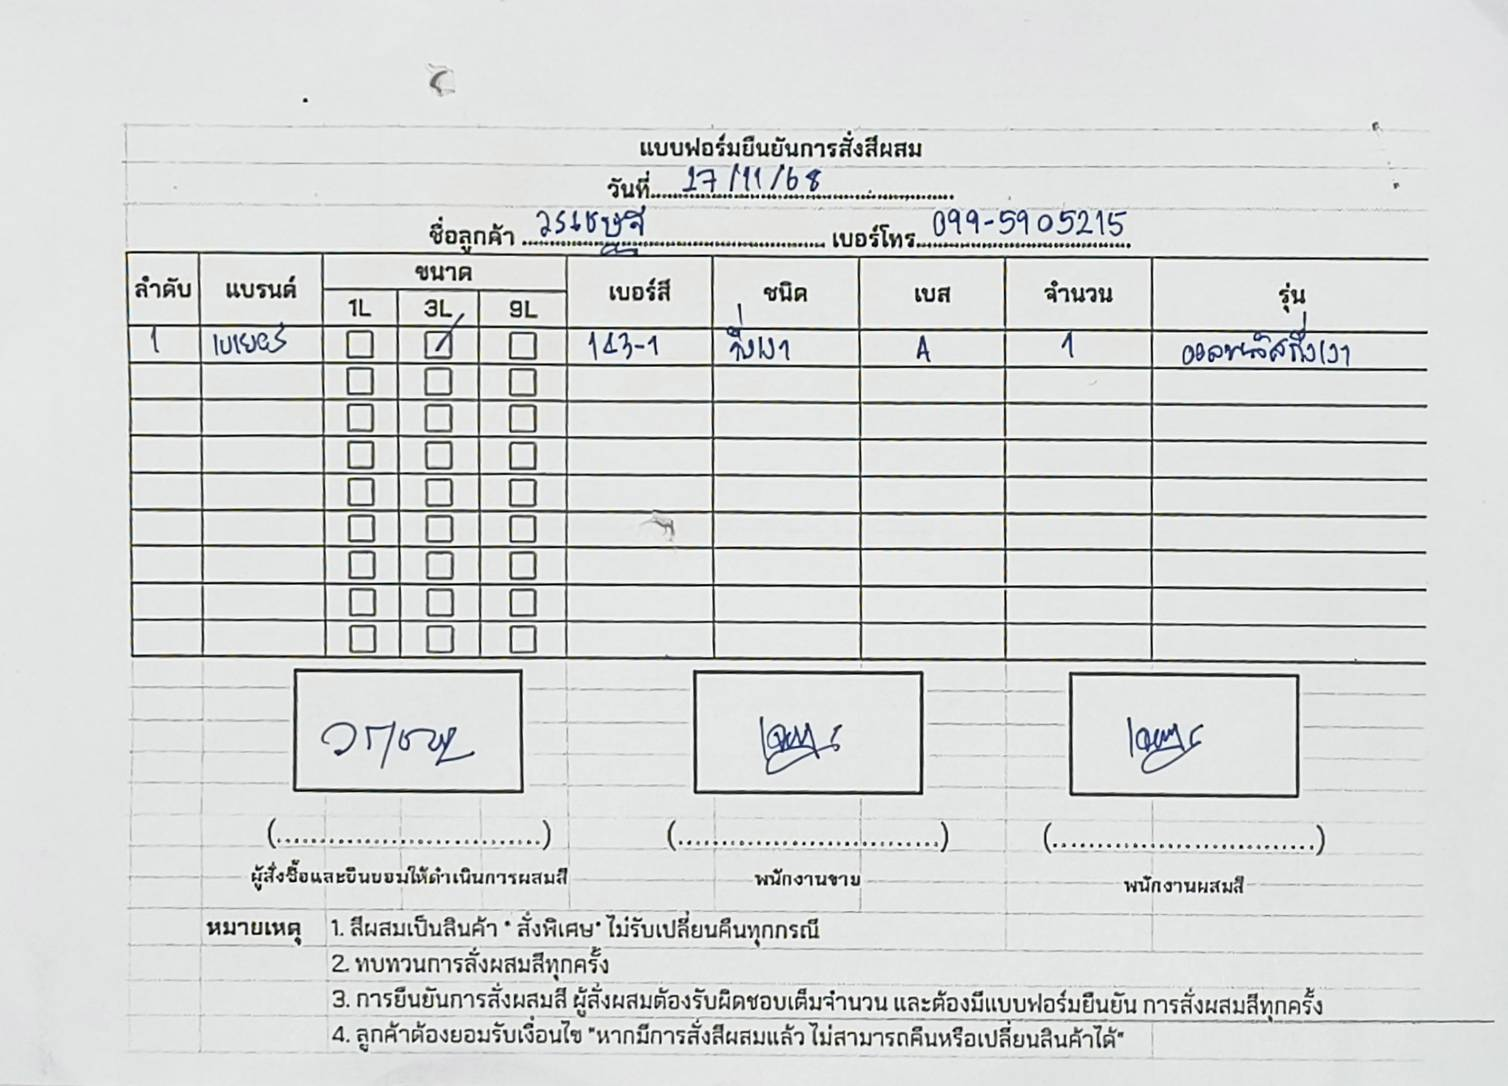 แบบฟอร์มยืนยันการสั่งสีผสม
วันที่ 27/11/68
ชื่อลูกค้า เบอร์โทร 099-5905215
ลำดับ แบรนด์ ขนาด เบอร์สี ชนิด เบส จำนวน รุ่น
1L 3L 9L
1 เบเยอร์ 143-1 กึ่งเงา A 1 ออลพลัสกึ่งเงา
(..............................) (..............................) (..............................)
ผู้สั่งซื้อและยินยอมให้ดำเนินการผสมสี พนักงานขาย พนักงานผสมสี
หมายเหตุ 1. สีผสมเป็นสินค้า " สั่งพิเศษ" ไม่รับเปลี่ยนคืนทุกกรณี
2. ทบทวนการสั่งผสมสีทุกครั้ง
3. การยืนยันการสั่งผสมสี ผู้สั่งผสมต้องรับผิดชอบเต็มจำนวน และต้องมีแบบฟอร์มยืนยัน การสั่งผสมสีทุกครั้ง
4. ลูกค้าต้องยอมรับเงื่อนไข "หากมีการสั่งสีผสมแล้ว ไม่สามารถคืนหรือเปลี่ยนสินค้าได้"